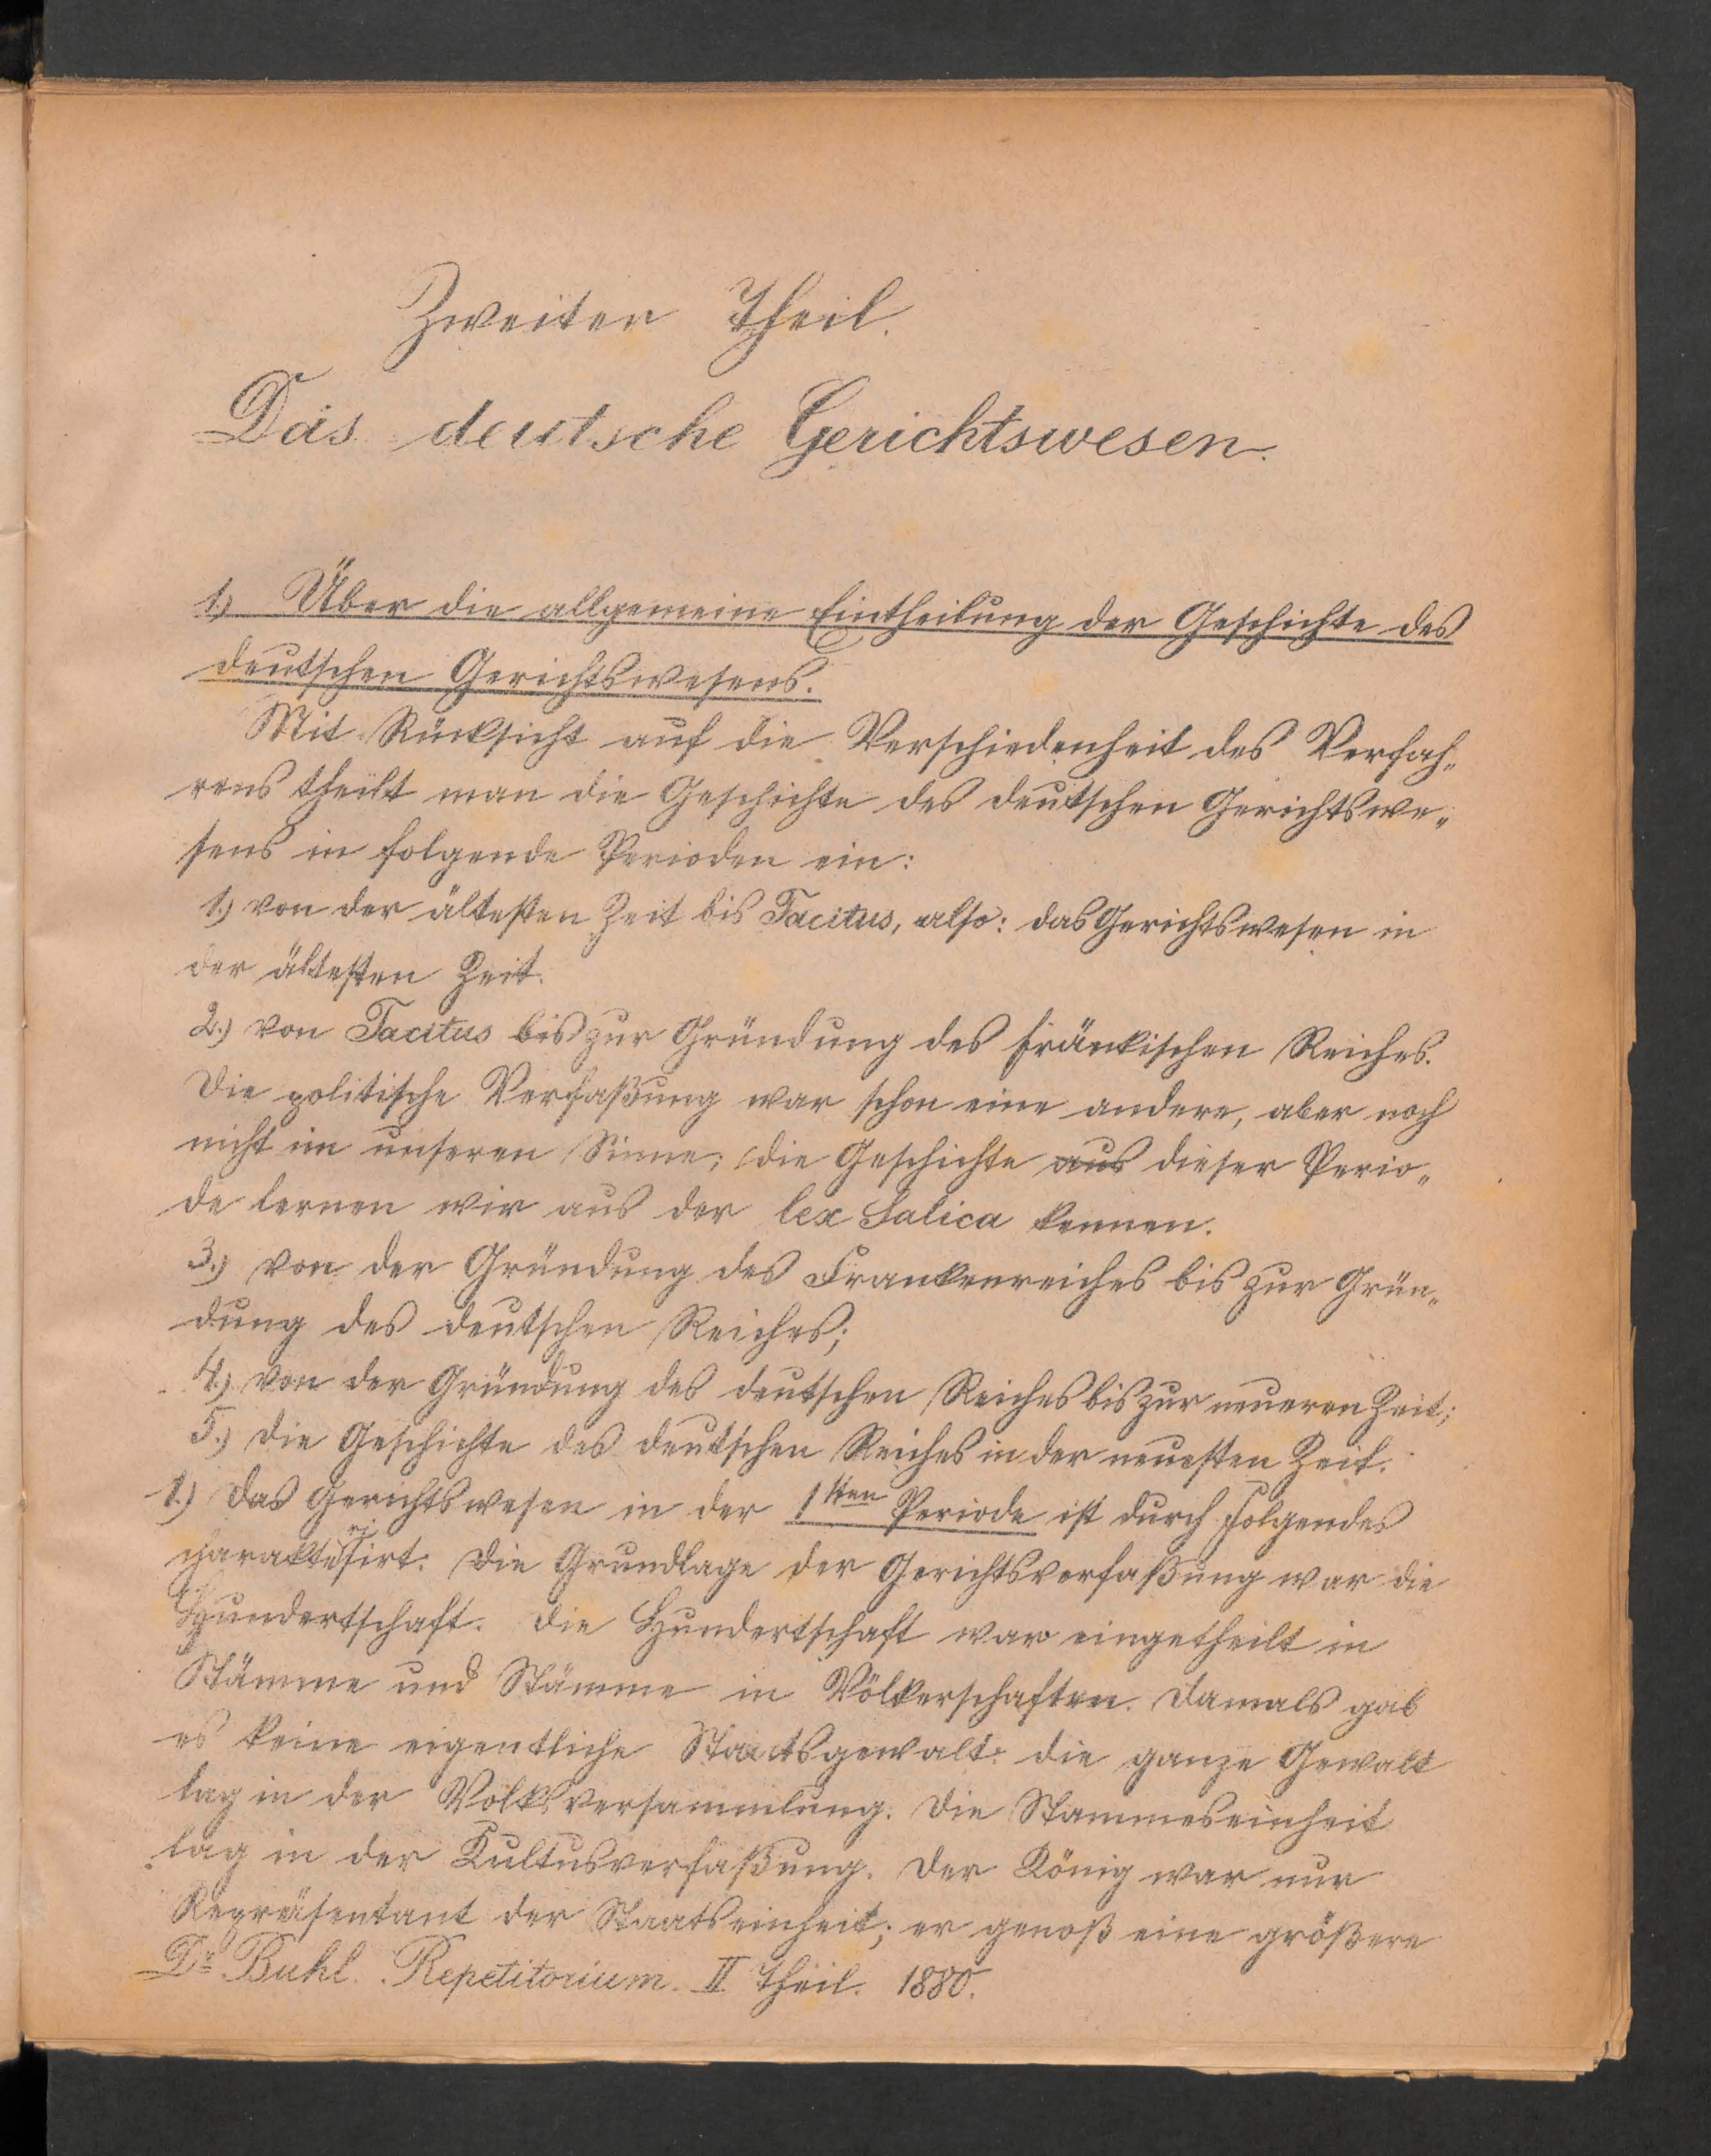 Zweiter Theil.
Das deutsche Gerichtswesen.
1.) Über die allgemeine Eintheilung der Geschichte des
deutschen Gerichtswesens.
Mit Rücksicht auf die Verschiedenheit des Verfah„
rens theilt man die Geschichte des deutschen Gerichtswe„
sens in folgende Perioden ein:
1.) von der ältesten Zeit bis Tacitus, also: das Gerichtswesen in
der ältesten Zeit.
2.) von Tacitus bis zur Gründung des fränkischen Reiches.
Die politische Verfaßung war schon eine andere, aber noch
nicht im unseren Sinne; die Geschichte aus dieser Perio„
de lernen wir aus der lex Salica kennen.
3.) von der Gründung des Frankenreiches bis zur Grün„
dung des deutschen Reiches;
4.) von der Gründung des deutschen Reiches bis zur neueren Zeit;
5.) die Geschichte des deutschen Reiches in der neuesten Zeit.
1.) Das Gerichtswesen in der 1ten Periode ist durch Folgendes
charakterisirt: Die Grundlage der Gerichtsverfaßung war die
Hundertschaft. Die Hundertschaft war eingetheilt in
Stämme und Stämme in Völkerschaften. Damals gab
es keine eigentliche Staatsgewalt: die ganze Gewalt
lag in der Volksversammlung. Die Stammeseinheit
lag in der Kultusverfaßung. Der König war nur
Repräsentant der Staatseinheit; er genoß eine größere
Dr. Buhl. Repetitorium. II Theil. 1880.